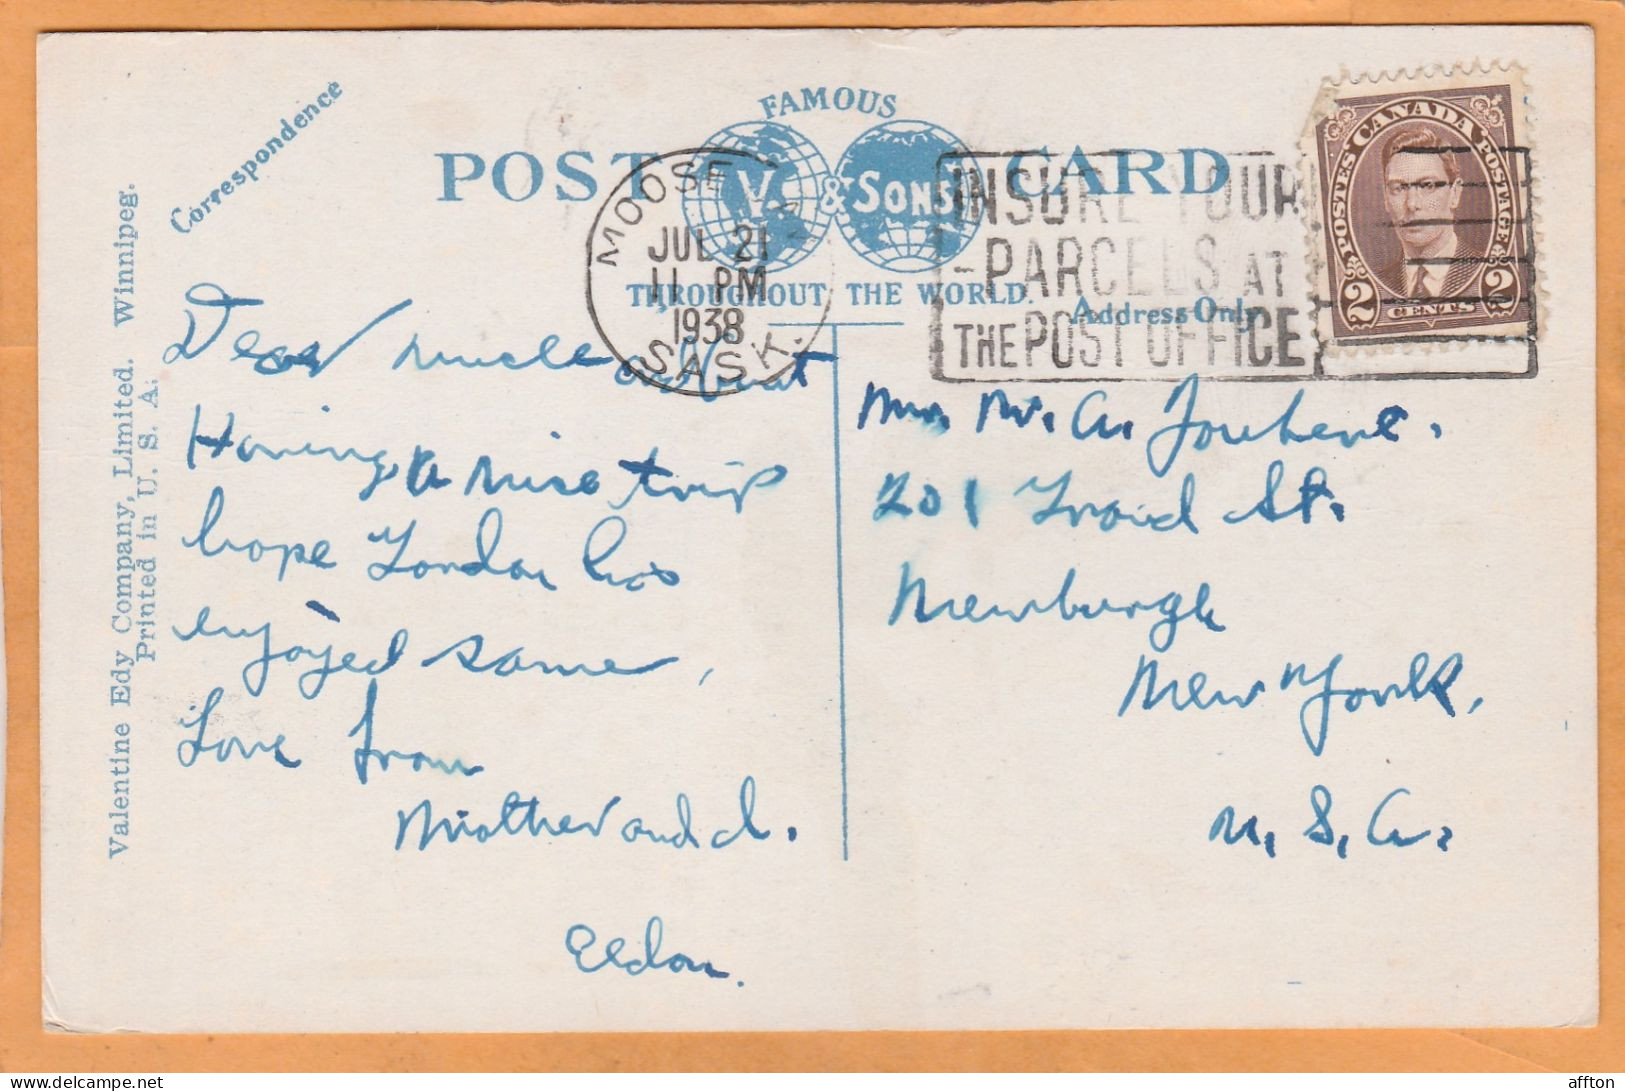 Correspondence
FAMOUS
POST CARD
V. & SONS
THROUGHOUT THE WORLD.
Address Only
MOOSE JAW
JUL 21
11 PM
1938
SASK.
INSURE YOUR
PARCELS AT
THE POST OFFICE
CANADA
POSTES POSTAGE
2 CENTS 2
Valentine Edy Company, Limited. Winnipeg.
Printed in U. S. A.
Dear Uncle aunt
Having a nice trip
hope London has
enjoyed same,
Love from
Mother and d.
Eldon.
Mr. A.
201 St.
Newburgh
New York,
U. S. A.
affton